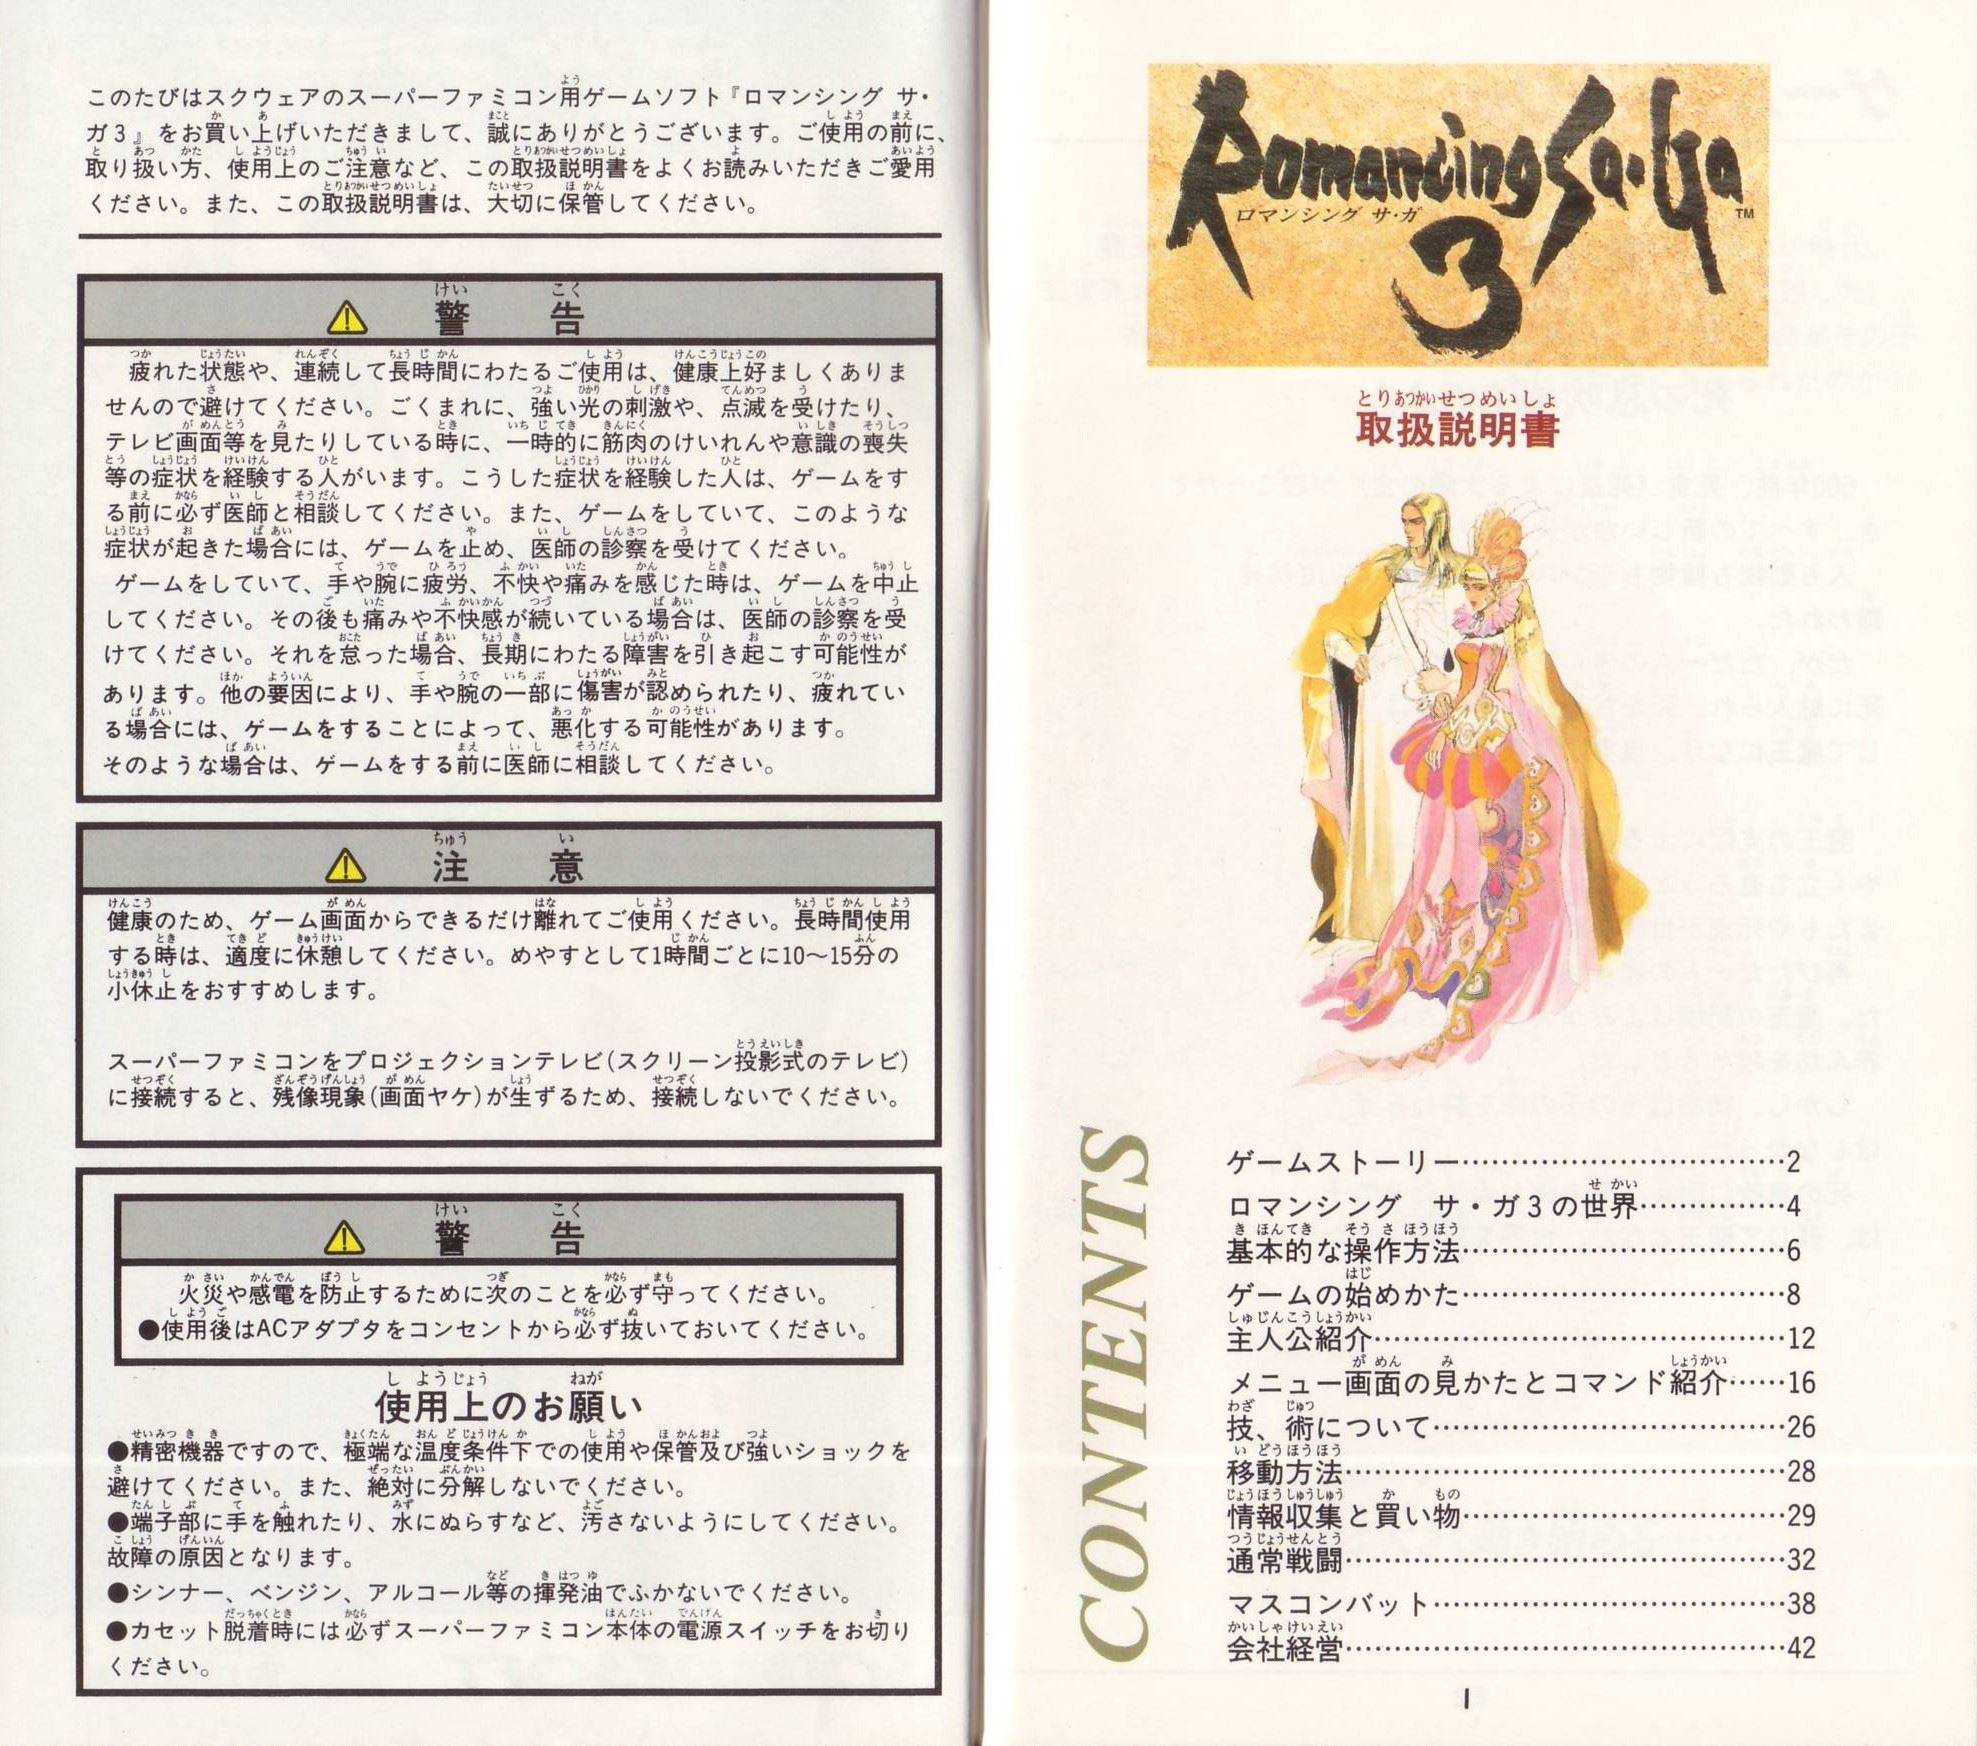 このたびはスクウェアのスーパーファミコン用ゲームソフト『ロマンシング サ・
ガ3』をお買い上げいただきまして、誠にありがとうございます。ご使用の前に、
取り扱い方、使用上のご注意など、この取扱説明書をよくお読みいただきご愛用
ください。また、この取扱説明書は、大切に保管してください。
警告
疲れた状態や、連続して長時間にわたるご使用は、健康上好ましくありま
せんので避けてください。ごくまれに、強い光の刺激や、点滅を受けたり、
テレビ画面等を見たりしている時に、一時的に筋肉のけいれんや意識の喪失
等の症状を経験する人がいます。こうした症状を経験した人は、ゲームをす
る前に必ず医師と相談してください。また、ゲームをしていて、このような
症状が起きた場合には、ゲームを止め、医師の診察を受けてください。
ゲームをしていて、手や腕に疲労、不快や痛みを感じた時は、ゲームを中止
してください。その後も痛みや不快感が続いている場合は、医師の診察を受
けてください。それを怠った場合、長期にわたる障害を引き起こす可能性が
あります。他の要因により、手や腕の一部に傷害が認められたり、疲れてい
る場合には、ゲームをすることによって、悪化する可能性があります。
そのような場合は、ゲームをする前に医師に相談してください。
注意
健康のため、ゲーム画面からできるだけ離れてご使用ください。長時間使用
する時は、適度に休憩してください。めやすとして1時間ごとに10〜15分の
小休止をおすすめします。
スーパーファミコンをプロジェクションテレビ(スクリーン投影式のテレビ)
に接続すると、残像現象(画面ヤケ)が生ずるため、接続しないでください。
警告
火災や感電を防止するために次のことを必ず守ってください。
●使用後はACアダプタをコンセントから必ず抜いておいてください。
使用上のお願い
●精密機器ですので、極端な温度条件下での使用や保管及び強いショックを
避けてください。また、絶対に分解しないでください。
●端子部に手を触れたり、水にぬらすなど、汚さないようにしてください。
故障の原因となります。
●シンナー、ベンジン、アルコール等の揮発油でふかないでください。
●カセット脱着時には必ずスーパーファミコン本体の電源スイッチをお切り
ください。
Romancing Sa・Ga
ロマンシング サ・ガ
TM
3
取扱説明書
CONTENTS
ゲームストーリー……………………………2
ロマンシング サ・ガ3の世界……………4
基本的な操作方法……………………………6
ゲームの始めかた……………………………8
主人公紹介……………………………………12
メニュー画面の見かたとコマンド紹介……16
技、術について………………………………26
移動方法………………………………………28
情報収集と買い物……………………………29
通常戦闘………………………………………32
マスコンバット………………………………38
会社経営………………………………………42
1